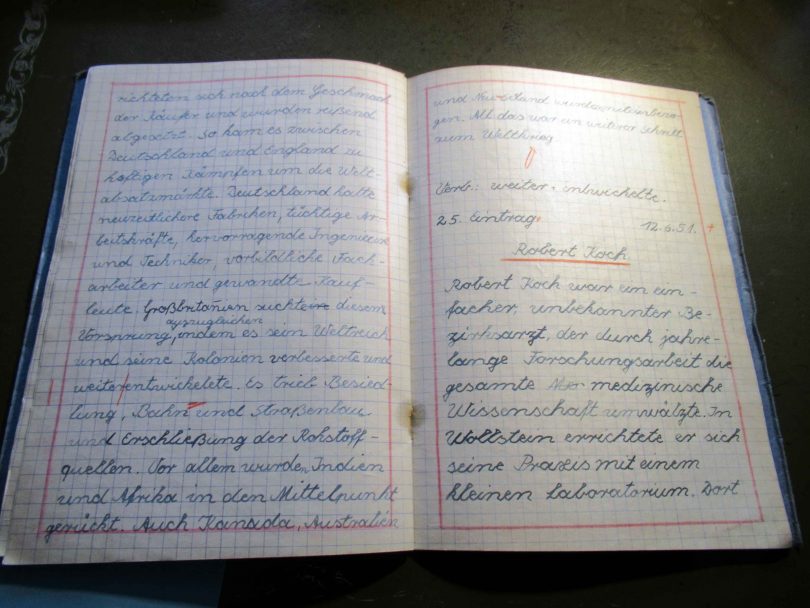 richteten sich nach dem Geschmach
der Käufer und wurden reißend
abgesetzt. So kam es zwischen
Deutschland und England zu
heftigen Kämpfen um die Welt-
absatzmärkte. Deutschland hatte
neuzeitlichere Fabriken, tüchtige Ar-
beitskräfte, hervorragende Ingenieure
und Techniker, vorbildliche Fach-
arbeiter und gewandte Kauf-
leute. Großbritanien suchte diesem
auszugleichen
Vorsprung, indem es sein Weltreich
und seine Kolonien verbesserte und
weiterentwickelete. Es trieb Besied-
lung, Bahn und Straßenbau
und Erschließung der Rohstoff-
quellen. Vor allem wurden Indien
und Afrika in den Mittelpunkt
gerückt. Auch Kanada, Australien
und Neuseeland wurden miteinbezo-
gen. All das war ein weiterer Schritt
zum Weltkrieg
Verb.: weiter - entwickelte.
25. Eintrag.
12.6.51.
Robert Koch
Robert Koch war ein ein-
facher, unbekannter Be-
zirksarzt, der durch jahre-
lange Forschungsarbeit die
gesamte medizinische
Wissenschaft umwälzte. In
Wollstein errichtete er sich
seine Praxis mit einem
kleinen Laboratorium. Dort